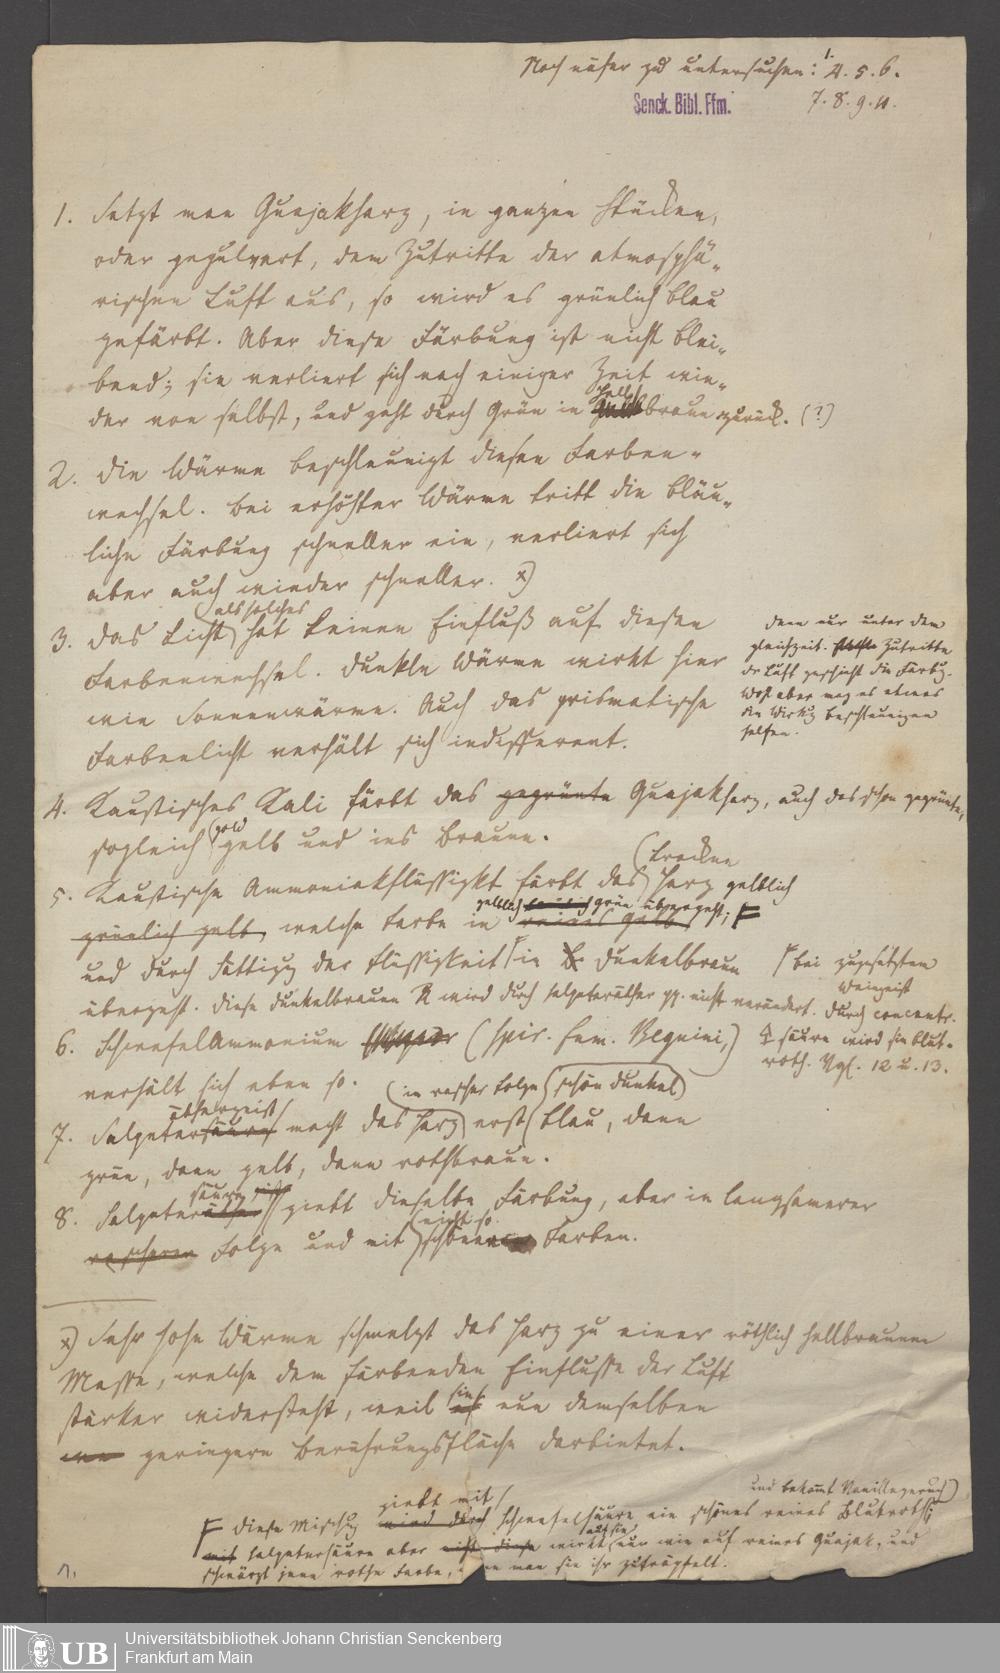 Noch näher zu untersuchen: 1. 4. 5. 6.
7. 8. 9. 11.
Senck. Bibl. Ffm.
1. Setzt man Guajakharz, in ganzen Stücken,
oder gepulvert, dem Zutritte der atmosphä„
rischen Luft aus, so wird es grünlich blau
gefärbt. Aber diese Färbung ist nicht blei„
bend; sie verliert sich nach einiger Zeit wie„
der von selbst, und geht durch Grün in hellbraun zurück. (?)
2. Die Wärme beschleunigt diesen Farben-
wechsel. Bei erhöhter Wärme tritt die bläu„
liche Färbung schneller ein, verliert sich
aber auch wieder schneller. x)
als solches
3. Das Licht hat keinen Einfluß auf diesen
Farbenwechsel. Dunkle Wärme wirkt hier
wie Sonnenwärme. Auch das prismatische
Farbenlicht verhält sich indifferent.
denn nur unter dem
gleichzeit. Zutritte
der Luft geschieht die Färbg.
Wohl aber mag es etwas
die Wirkg beschleunigen
helfen.
4. Kaustisches Kali färbt das gegrünte Guajakharz, auch das schon gegrünte,
sogleich goldgelb und ins Braune.
trockne
5. Kaustische Ammoniakflüssigkt färbt das Harz gelblich
gelblich grün übergeht; F
grünlich gelb, welche Farbe in reines Gelb
und durch Sättigg der Flüssigkeit in Dunkelbraun
übergeht. Diese dunkelbraune wird durch Salpeteräther pp. nicht verändert.
bei zugesetztem
Weingeist
Durch concentr.
säure wird sie blut-
roth. Vgl. 12 u. 13.
6. Schwefelammonium (Spir. fum. Beguini,)
verhält sich eben so.
in rascher Folge schön dunkel
äthergeist
7. Salpetersäure macht das Harz erst blau, dann
grün, dann gelb, dann rothbraun.
säure
8. Salpeteräther giebt dieselbe Färbung, aber in langsamerer
nicht so
rascherer Folge und mit schönen Farben.
x) Sehr hohe Wärme schmelzt das Harz zu einer röthlich hellbraunen
Masse, welche dem färbenden Einflusse der Luft
stärker widersteht, weil sie nun demselben
geringere Berührungsfläche darbietet.
giebt mit und bekömt Vanillegeruch
F Diese Mischg wird durch Schwefelsäure ein schönes reines Blutroth;
mit Salpetersäure aber nicht diese wirkt auf sie nur wie auf reines Guajak, und
schwärzt jene rothe Farbe, wenn man sie ihr zutröpfelt.
1.
UB
Universitätsbibliothek Johann Christian Senckenberg
Frankfurt am Main